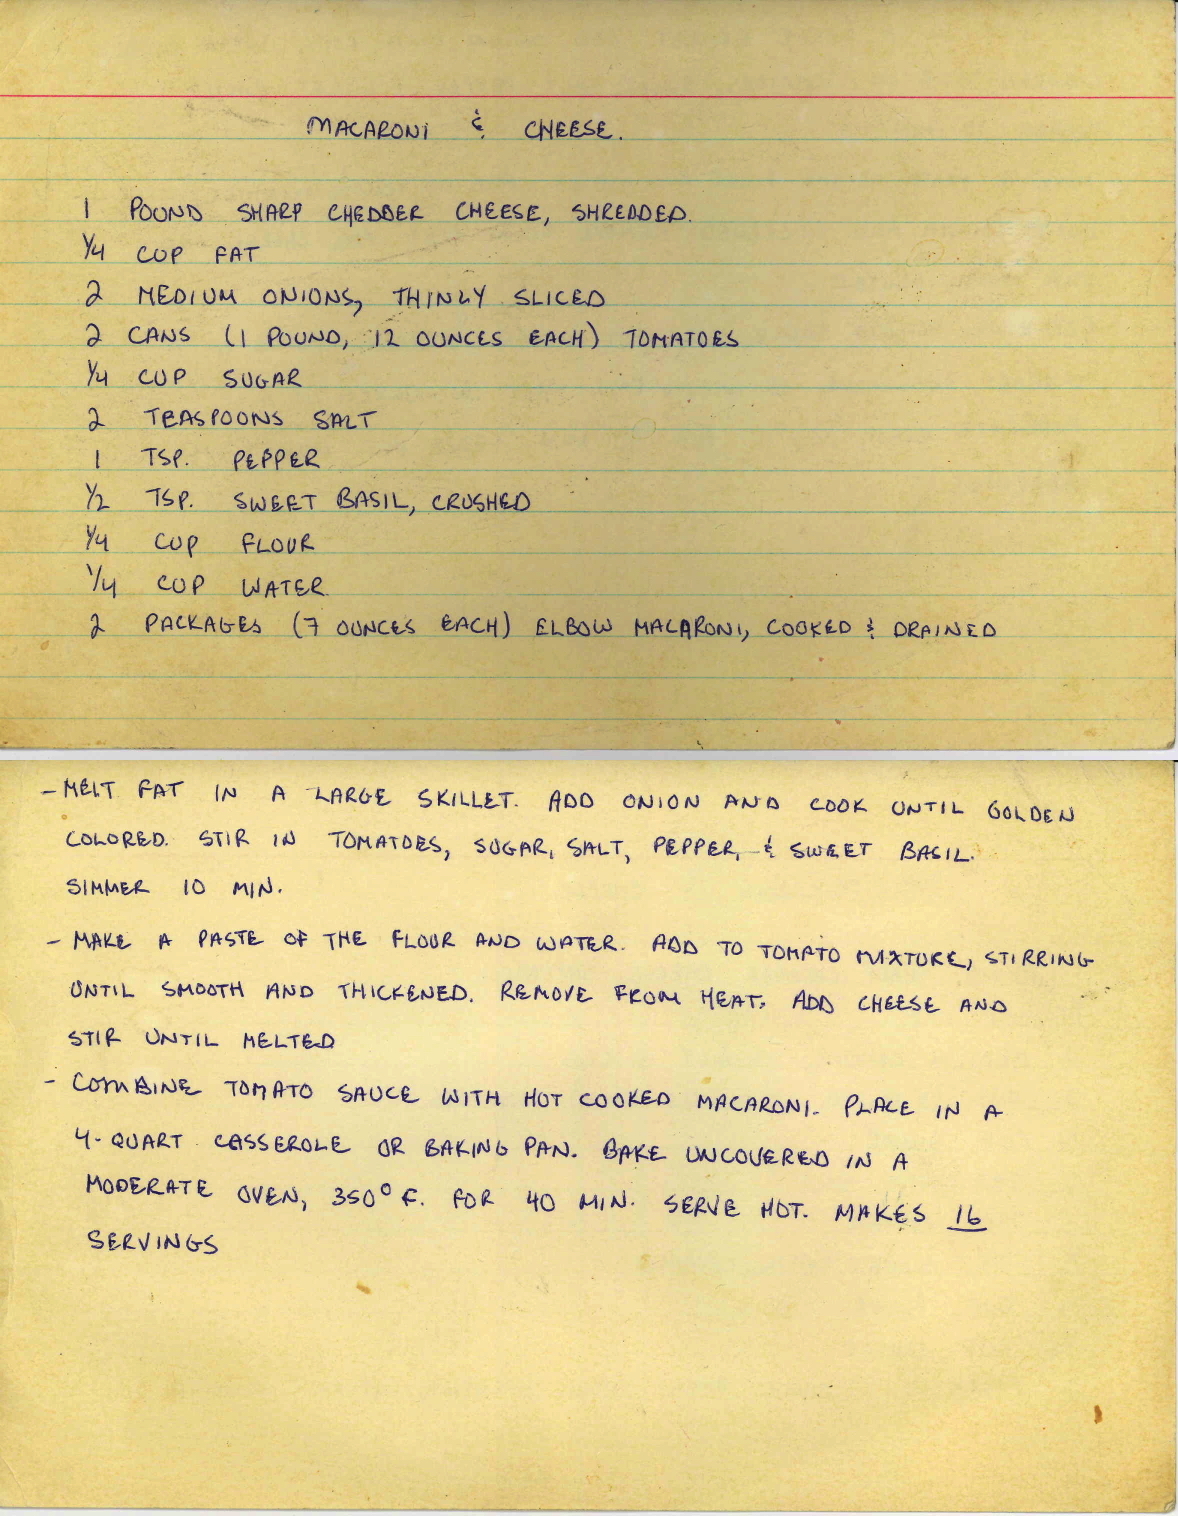 MACARONI & CHEESE.
1 POUND SHARP CHEDDER CHEESE, SHREDDED.
1/4 CUP FAT
2 MEDIUM ONIONS, THINLY SLICED
2 CANS (1 POUND, 12 OUNCES EACH) TOMATOES
1/4 CUP SUGAR
2 TEASPOONS SALT
1 TSP. PEPPER
1/2 TSP. SWEET BASIL, CRUSHED
1/4 CUP FLOUR
1/4 CUP WATER
2 PACKAGES (7 OUNCES EACH) ELBOW MACARONI, COOKED & DRAINED
- MELT FAT IN A LARGE SKILLET. ADD ONION AND COOK UNTIL GOLDEN
COLORED. STIR IN TOMATOES, SUGAR, SALT, PEPPER, & SWEET BASIL.
SIMMER 10 MIN.
- MAKE A PASTE OF THE FLOUR AND WATER. ADD TO TOMATO MIXTURE, STIRRING
UNTIL SMOOTH AND THICKENED. REMOVE FROM HEAT. ADD CHEESE AND
STIR UNTIL MELTED
- COMBINE TOMATO SAUCE WITH HOT COOKED MACARONI. PLACE IN A
4-QUART CASSEROLE OR BAKING PAN. BAKE UNCOVERED IN A
MODERATE OVEN, 350° F. FOR 40 MIN. SERVE HOT. MAKES 16
SERVINGS